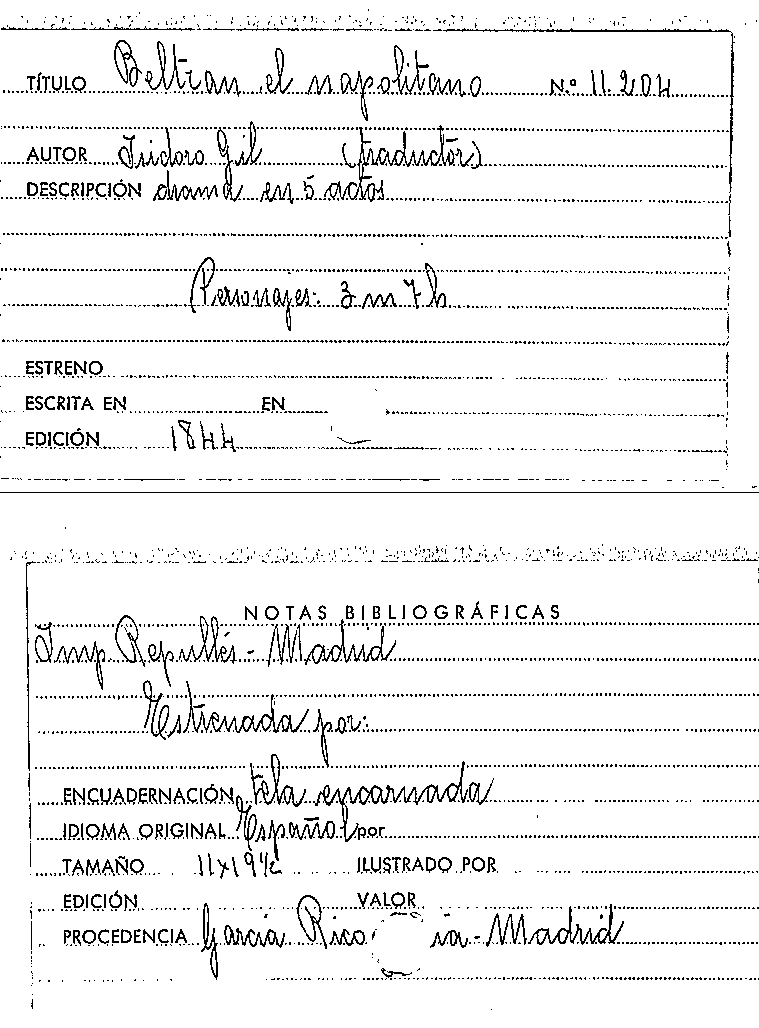 TÍTULO Beltran el napolitano N.º 11.204
AUTOR Isidoro Gil (traductor)
DESCRIPCIÓN drama en 5 actos
Personajes: 3 m 7 h
ESTRENO
ESCRITA EN EN
EDICIÓN 1844
NOTAS BIBLIOGRÁFICAS
Imp Repullés - Madrid
Estrenada por:
ENCUADERNACIÓN tela encarnada
IDIOMA ORIGINAL Español por
TAMAÑO 11x19½ ILUSTRADO POR
EDICIÓN VALOR
PROCEDENCIA García Rico ía - Madrid